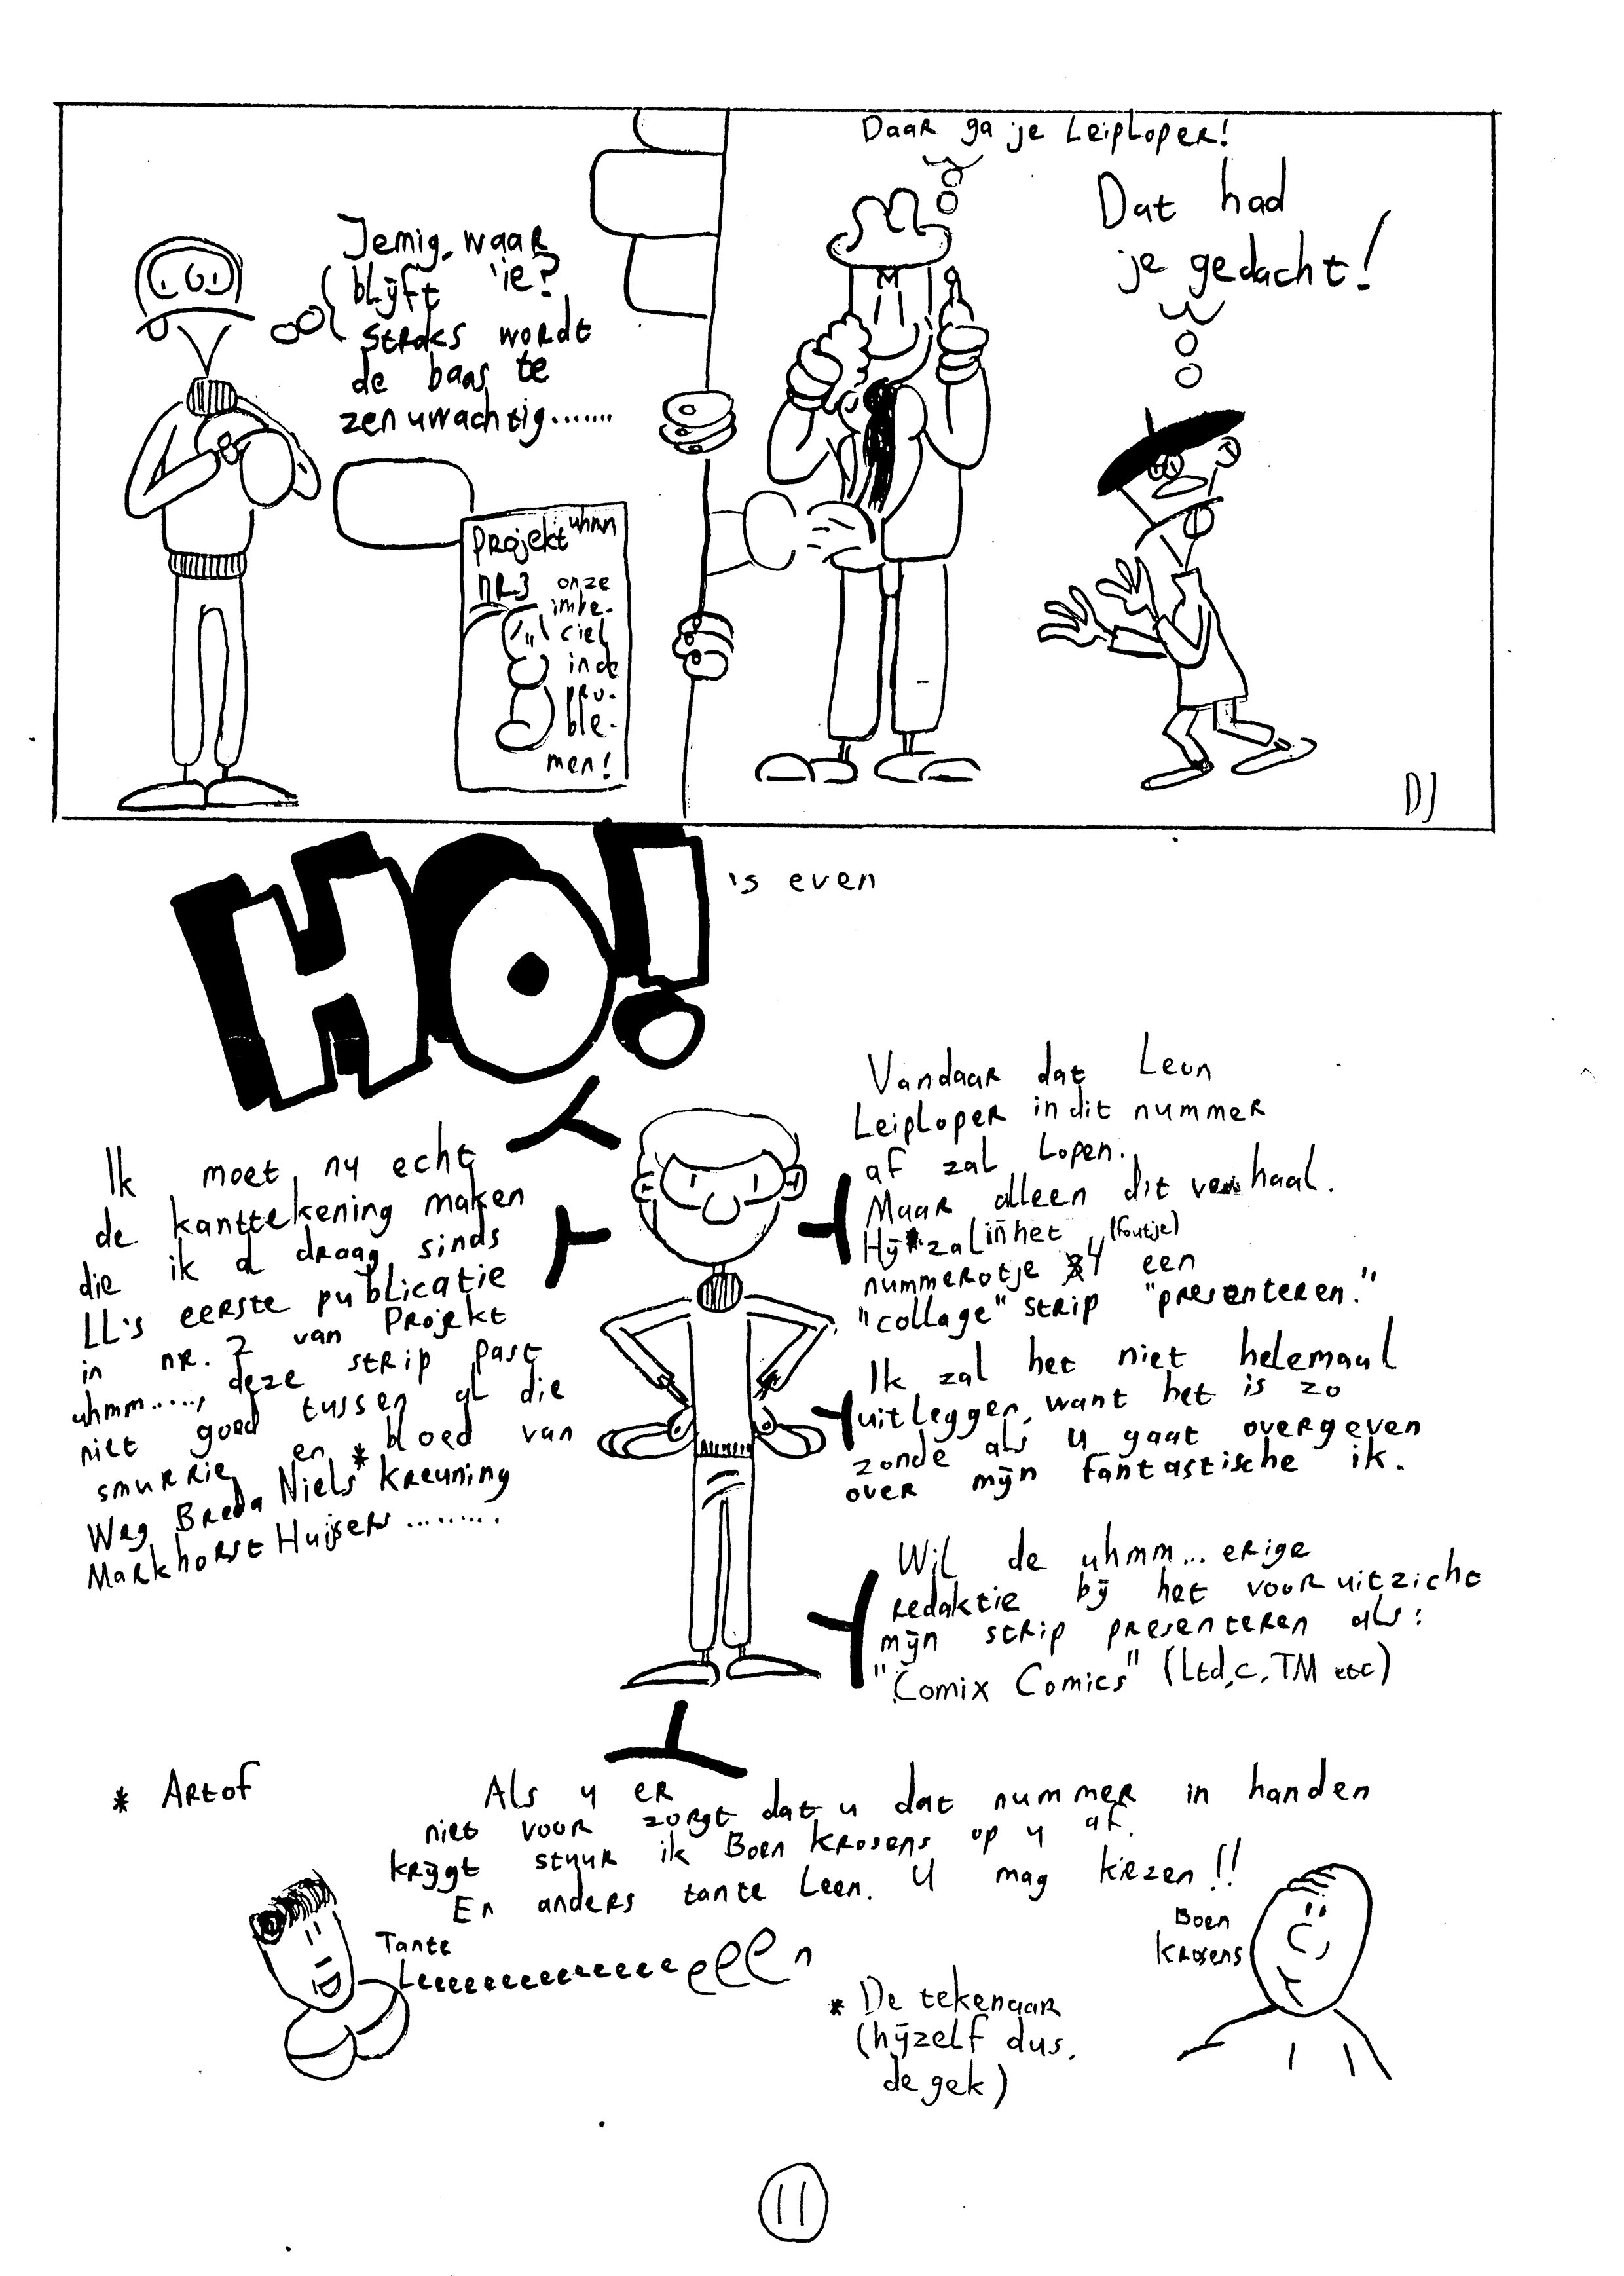 Daar ga je Leiploper!
Jemig, waar
blijft 'ie?
straks wordt
de baas te
zenuwachtig.......
Dat had
je gedacht!
Projekt uhmn
nr.3 onze
imbe-
ciel
in de
pro-
ble-
men!
DJ
HO! 's even
Ik moet nu echt
de kanttekening maken
die ik al draag sinds
LL's eerste publicatie
in nr. 2 van Projekt
uhmm....., deze strip past
niet goed tussen al die
smurrie en * bloed van
Weg Breda Niels Kreuning
Markhorst Huijsers.........
Vandaar dat Leon
Leiploper in dit nummer
af zal lopen.
Maar alleen dit verhaal.
Hij * zal in het (foutje)
nummerotje 4 een
"collage" strip "presenteren."
Ik zal het niet helemaal
uitleggen, want het is zo
zonde als u gaat overgeven
over mijn fantastische ik.
Wil de uhmm... erige
redaktie bij het vooruitzicht
mijn strip presenteren als:
"Comix Comics" (Ltd, c, TM etc)
* Artof
Als u er
niet voor zorgt dat u dat nummer in handen
krijgt stuur ik Boen Krosens op u af.
En anders tante Leen. U mag kiezen!!
Tante
Leeeeeeeeeeeeeeeeeen
Boen
Krosens
* De tekenaar
(hijzelf dus,
de gek)
11